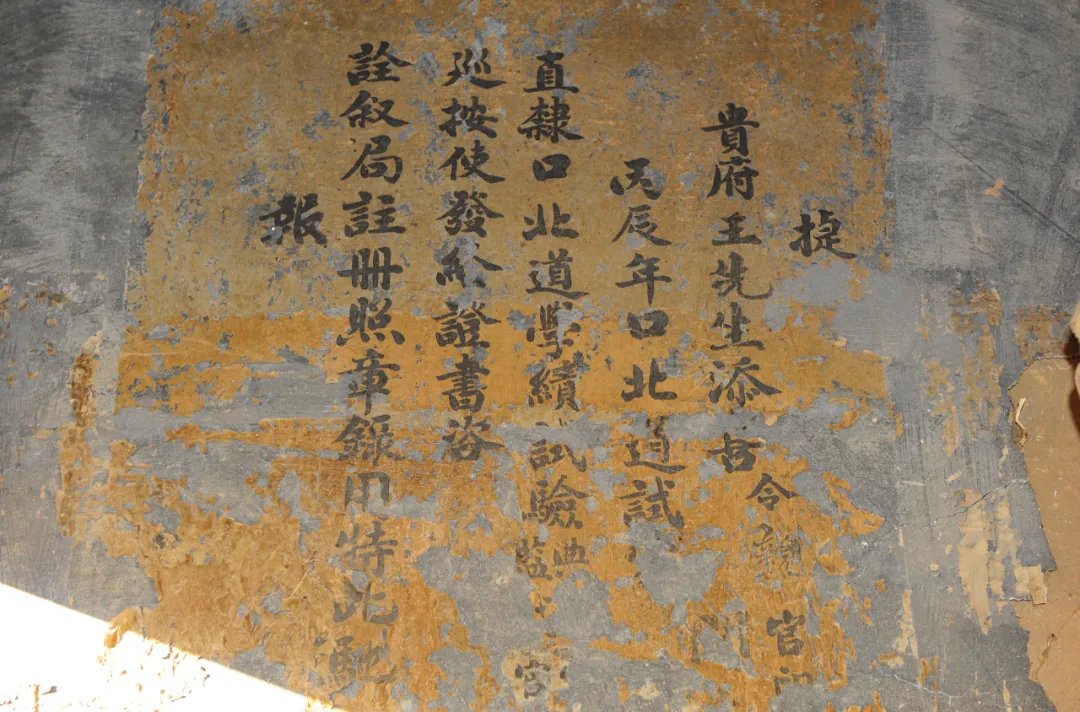 捷
貴府王先生添吉令親官印門
丙辰年口北道試
直隸口北道學績試驗典監官
巡按使發給證書咨
詮叙局註冊照章錄用特此馳
報